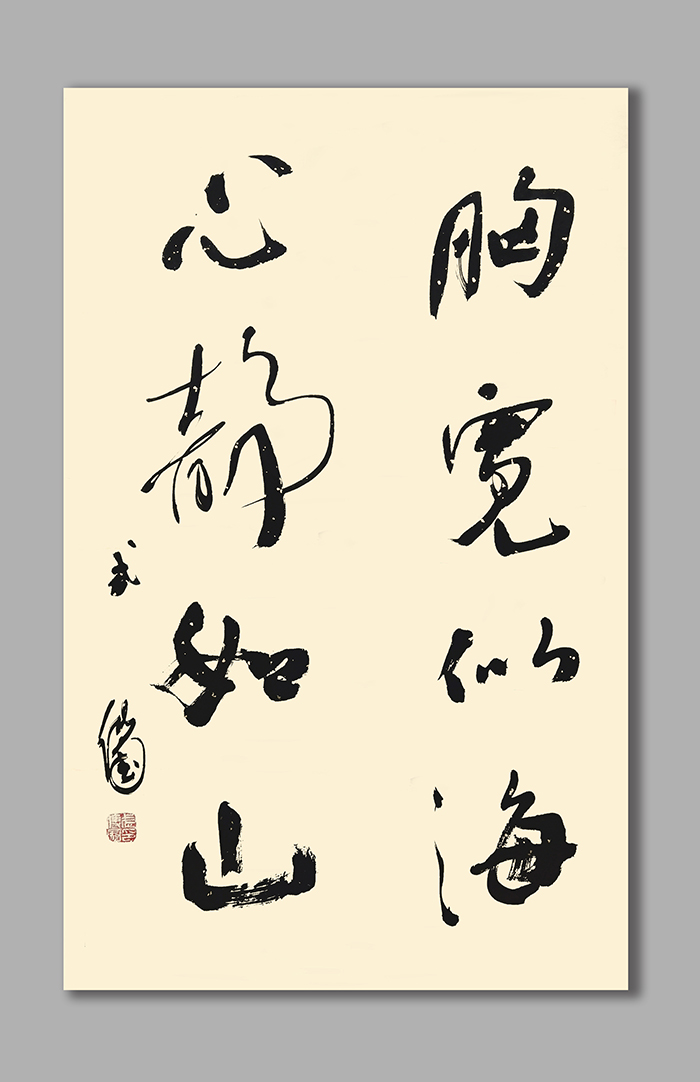 胸宽似海
心静如山